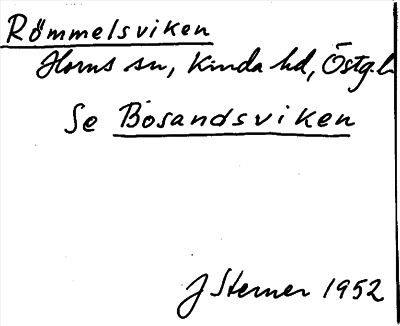 Römmelsviken
Horns sn, Kinda hd, Östg.l.
Se Bosandsviken
J Sterner 1952